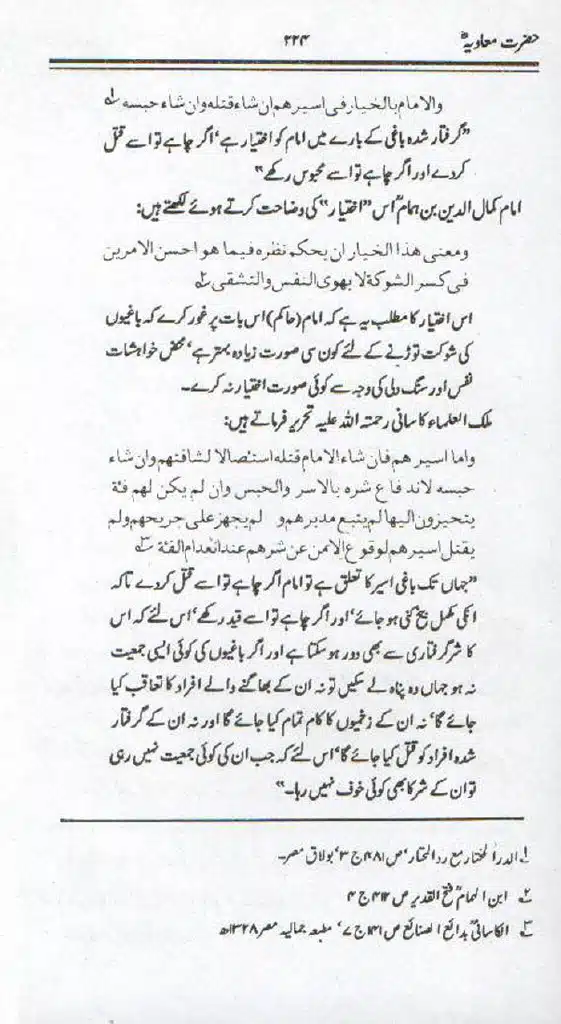 حضرت معاویہؓ ۲۲۴
والامام بالخیار فی اسیرهم ان شاء قتله وان شاء حبسه ۱؎
"گرفتار شدہ باغی کے بارے میں امام کو اختیار ہے' اگر چاہے تو اسے قتل
کردے اور اگر چاہے تو اسے محبوس رکھے"
امام کمال الدین بن ہمامؒ اس "اختیار" کی وضاحت کرتے ہوئے لکھتے ہیں:
ومعنی هذا الخیار ان یحکم نظره فیما هو احسن الامرین
فی کسر الشوکة لا بهوی النفس والتشفی ۲؎
اس اختیار کا مطلب یہ ہے کہ امام (حاکم) اس بات پر غور کرے کہ باغیوں
کی شوکت توڑنے کے لئے کون سی صورت زیادہ بہتر ہے' محض خواہشات
نفس اور سنگ دلی کی وجہ سے کوئی صورت اختیار نہ کرے۔
ملک العلماء کاسانی رحمتہ اللہ علیہ تحریر فرماتے ہیں:
واما اسیرهم فان شاء الامام قتله استصالا لشافتهم وان شاء
حبسه لاندفاع شره بالاسر والحبس وان لم یکن لهم فئة
یتحیزون الیها لم یتبع مدبرهم و لم یجهز علی جریحهم ولم
یقتل اسیرهم لوقوع الامن عن شرهم عند انعدام الفئة ۳؎
"جہاں تک باغی اسیر کا تعلق ہے تو امام اگر چاہے تو اسے قتل کردے تاکہ
انکی مکمل بیخ کنی ہو جائے' اور اگر چاہے تو اسے قید رکھے' اس لئے کہ اس
کا شر گرفتاری سے بھی دور ہو سکتا ہے اور اگر باغیوں کی کوئی ایسی جمعیت
نہ ہو جہاں وہ پناہ لے سکیں تو نہ ان کے بھاگنے والے افراد کا تعاقب کیا
جائے گا' نہ ان کے زخمیوں کا کام تمام کیا جائے گا اور نہ ان کے گرفتار
شدہ افراد کو قتل کیا جائے گا' اس لئے کہ جب ان کی کوئی جمعیت نہیں رہی
تو ان کے شر کا بھی کوئی خوف نہیں رہا۔"
۱؎ الدرالمختار مع رد المختار' ص ۴۸۱ ج ۳' بولاق مصر۔
۲؎ ابن الہمامؒ فتح القدیر ص ۴۱۲ ج ۴
۳؎ الکاسانیؒ بدائع الصنائع ص ۱۴۱ ج ۷' مطبعہ جمالیہ مصر ۱۳۲۸ھ